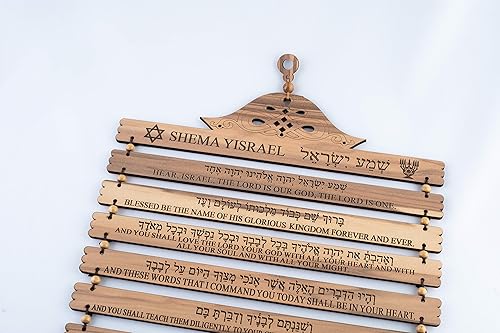 SHEMA YISRAEL שמע ישראל
שמע ישראל יהוה אלהינו יהוה אחד
HEAR, ISRAEL, THE LORD IS OUR GOD, THE LORD IS ONE.
ברוך שם כבוד מלכותו לעולם ועד
BLESSED BE THE NAME OF HIS GLORIOUS KINGDOM FOREVER AND EVER,
וְאָהַבְתָּ אֵת יְהוָה אֱלֹהֶיךָ בְּכָל לְבָבְךָ וּבְכָל נַפְשְׁךָ וּבְכָל מְאֹדֶךָ
AND YOU SHALL LOVE THE LORD YOUR GOD WITH ALL YOUR HEART AND WITH
ALL YOUR SOUL AND WITH ALL YOUR MIGHT.
וְהָיוּ הַדְּבָרִים הָאֵלֶּה אֲשֶׁר אָנֹכִי מְצַוְּךָ הַיּוֹם עַל לְבָבֶךָ
AND THESE WORDS THAT I COMMAND YOU TODAY SHALL BE IN YOUR HEART.
וְשִׁנַּנְתָּם לְבָנֶיךָ וְדִבַּרְתָּ בָּם
AND YOU SHALL TEACH THEM DILIGENTLY TO YOUR